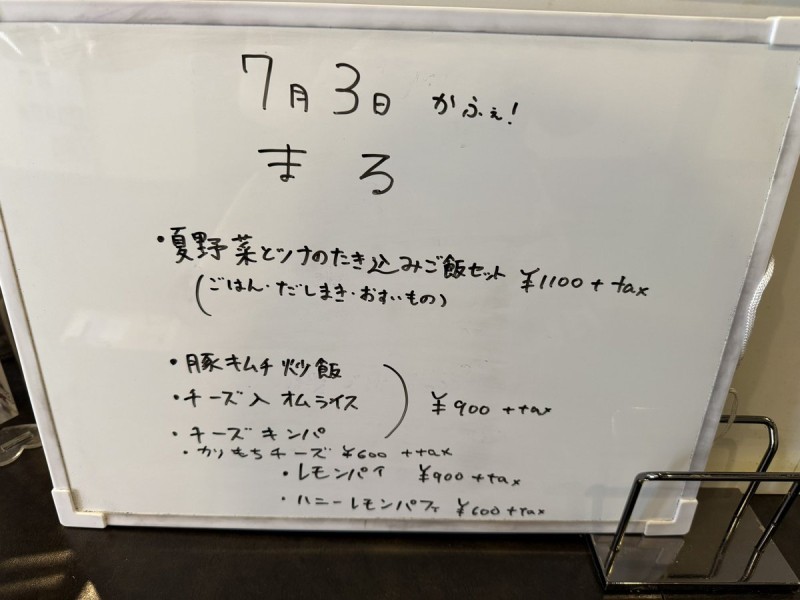 7月3日 かふぇ!
まろ
・夏野菜とツナのたき込みご飯セット ¥1100+tax
(ごはん・だしまき・おすいもの)
・豚キムチ炒飯
・チーズ入オムライス ¥900+tax
・チーズキンパ
・かりもちチーズ ¥600+tax
・レモンパイ ¥900+tax
・ハニーレモンパフィ ¥600+tax